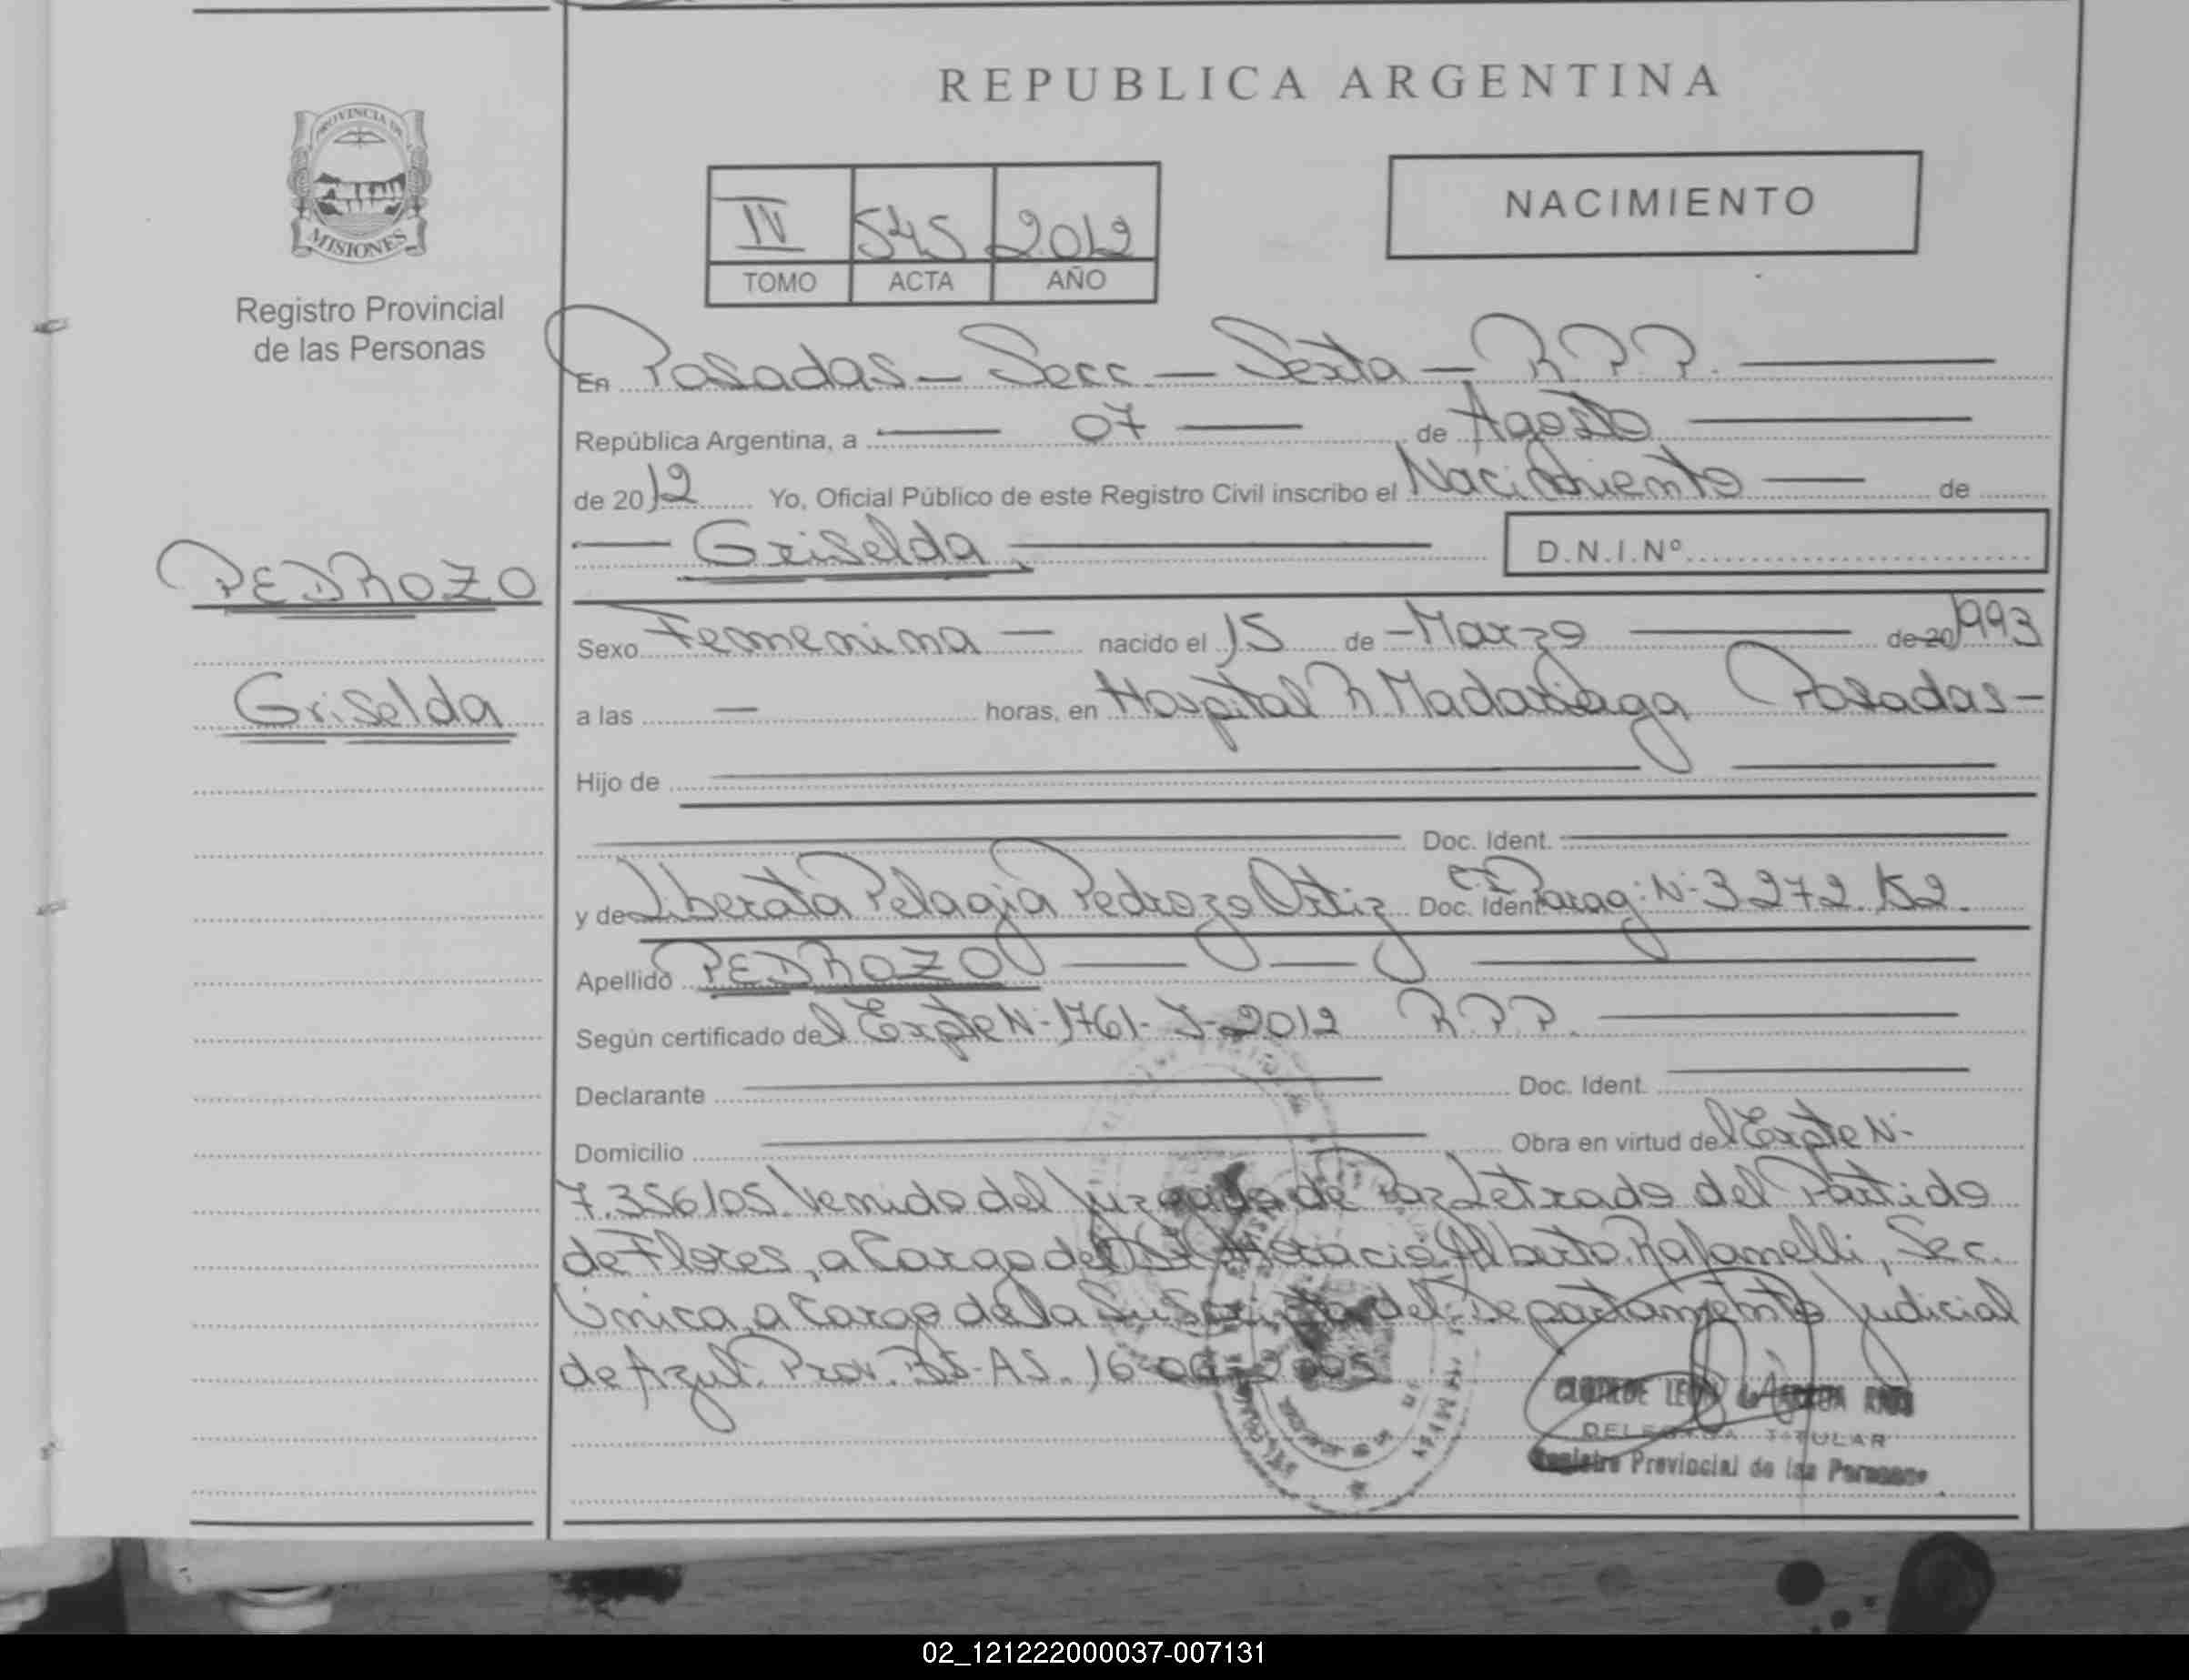 REPUBLICA ARGENTINA
PROVINCIA DE
MISIONES
Registro Provincial
de las Personas
NACIMIENTO
IV 545 2.012
TOMO ACTA AÑO
En Posadas - Secc. - Sexta - R.P.P.
República Argentina, a 07 de Agosto
de 2012 Yo, Oficial Público de este Registro Civil inscribo el Nacimiento de
Griselda D.N.I.Nº
PEDROZO
Griselda
Sexo Femenina nacido el 15 de Marzo de 20 1993
a las — horas, en Hospital R. Madariaga Posadas-
Hijo de
Doc. Ident.
y de Liberata Pelagia Pedrozo Ortiz Doc. Ident. C.I. Parag. N- 3.272.152.
Apellido PEDROZO
Según certificado del Expte N-1761-J-2012 R.P.P.
Declarante Doc. Ident.
Domicilio Obra en virtud del Expte N-
7.356/05. Venido del Juzgado de Paz Letrado del Partido
de Flores, a Cargo del Dr Horacio Alberto Rafanelli, Sec.
Única, a Cargo de la Suscripta del Departamento Judicial
de Azul. Prov. BS-AS. 16-06-2005
DELEGADA TITULAR
Registro Provincial de las Personas
02_121222000037-007131